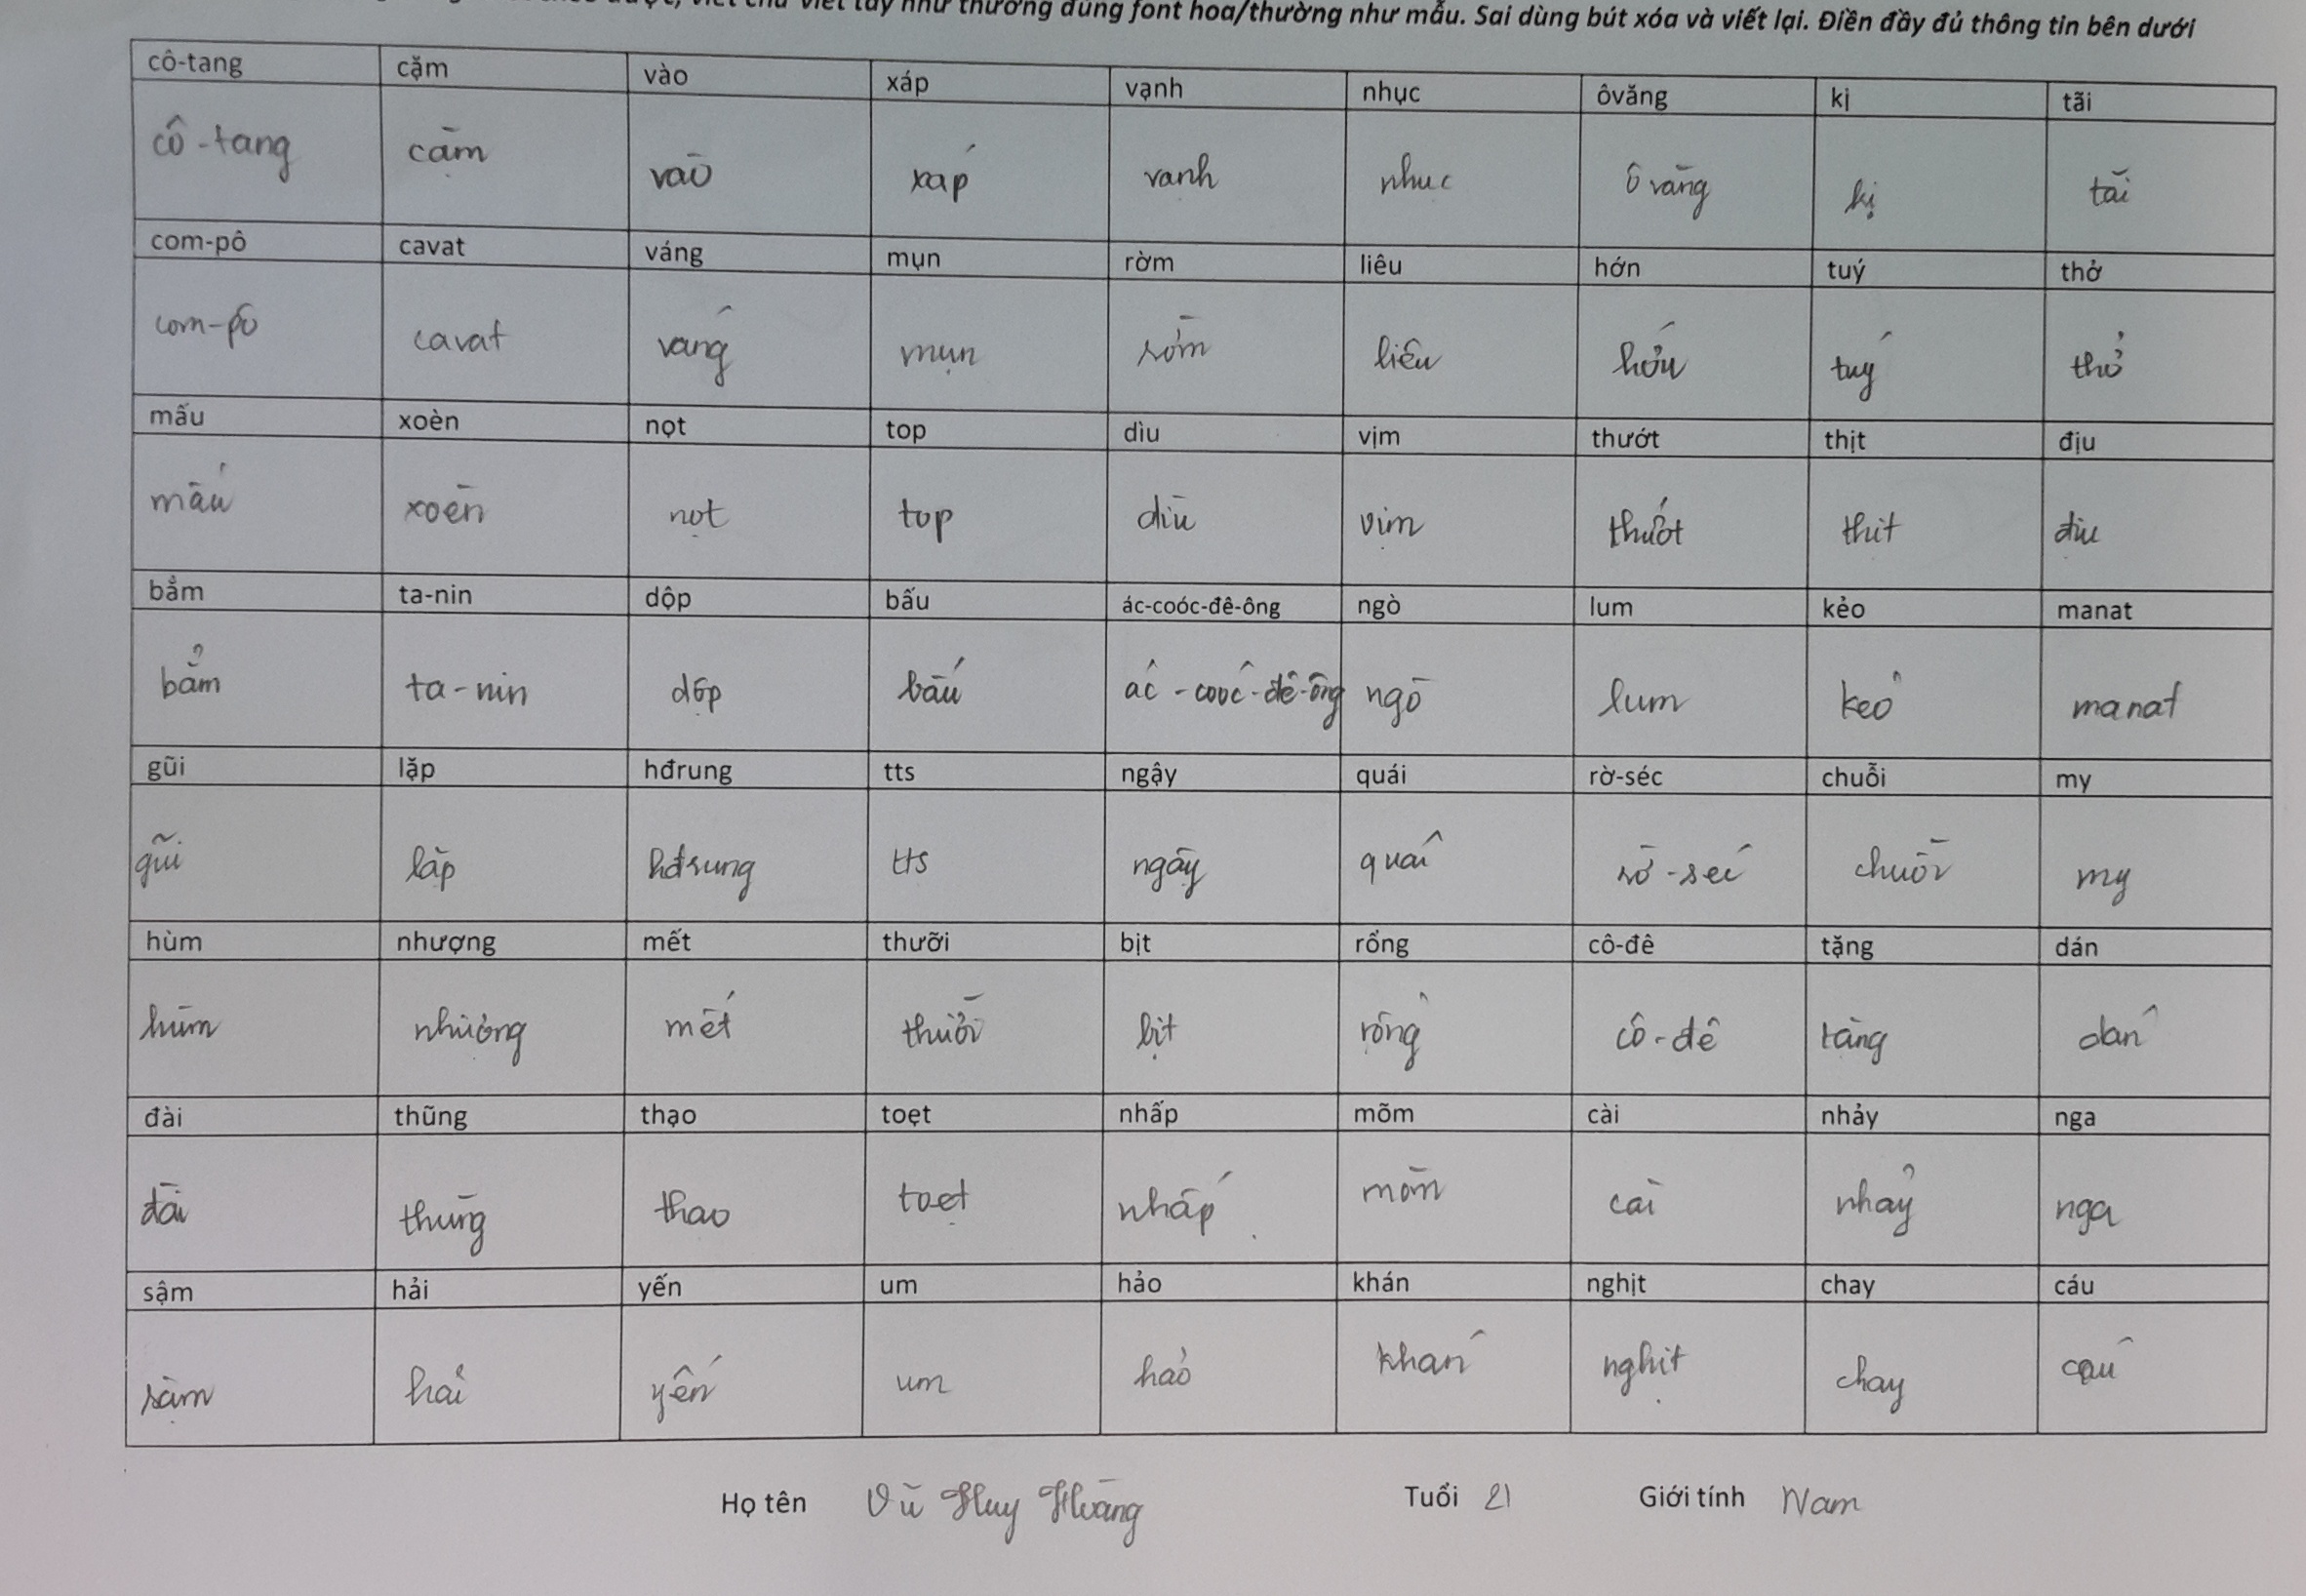 như thường dùng font hoa/thường như mẫu. Sai dùng bút xóa và viết lại. Điền đầy đủ thông tin bên dưới
cô-tang cặm vào xáp vạnh nhục ôvăng kị tãi
cô-tang cặm vào xáp vanh nhuc ôvăng kị tãi
com-pô cavat váng mụn rờm liêu hớn tuý thở
com-pô cavat váng mụn rờm liêu hớn tuý thở
mấu xoèn nọt top dìu vịm thướt thịt địu
mấu xoèn nọt top dìu vịm thướt thịt địu
bẳm ta-nin dộp bấu ác-coóc-đê-ông ngò lum kẻo manat
bẳm ta-nin dộp bấu ác-coóc-đê-ông ngò lum kẻo manat
gũi lặp hđrung tts ngậy quái rờ-séc chuỗi my
gũi lặp hđrung tts ngậy quái rờ-séc chuỗi my
hùm nhượng mết thưỡi bịt rổng cô-đê tặng dán
hùm nhượng mết thưỡi bịt rổng cô-đê tặng dán
đài thũng thạo toẹt nhấp mõm cài nhảy nga
đài thũng thạo toẹt nhấp mõm cài nhảy nga
sậm hải yến um hảo khán nghịt chay cáu
sậm hải yến um hảo khán nghịt chay cáu
Họ tên Vũ Huy Hoàng Tuổi 21 Giới tính Nam